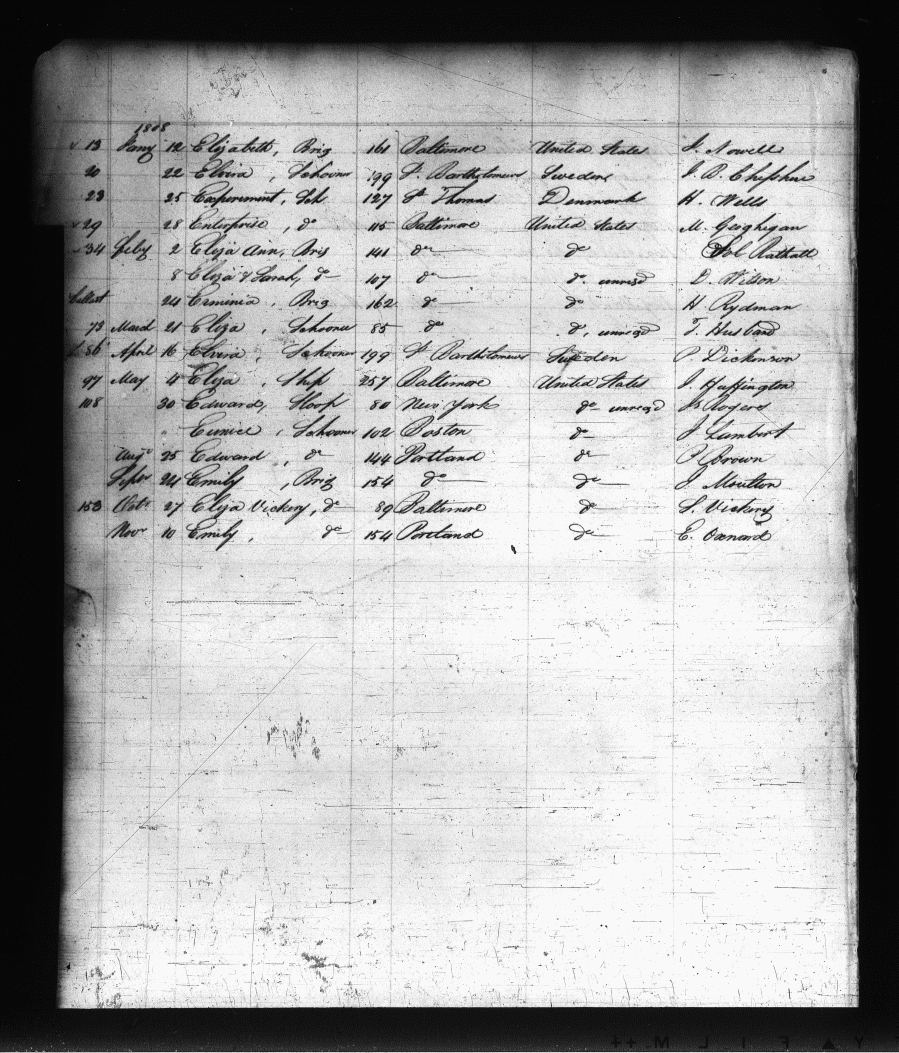 1808
13 Jany 12 Elizabeth, Brig 161 Baltimore United States J. Nowell
20 22 Elvira, Schooner 199 St. Bartholomews Sweden J. B. Cheshire
23 25 Experiment, Sch 127 St Thomas Denmark H. Wells
29 28 Enterprise, do 115 Baltimore United States M. Geighegan
34 Feby 2 Eliza Ann, Brig 141 do do Sol Rathall
8 Eliza & Sarah, do 107 do do unregd D. Wilson
ballast 24 Erminia, Brig 162 do do H. Rydman
73 March 21 Eliza, Schooner 85 do do, unregd T. Husband
86 April 16 Elvira, Schooner 199 St Bartholomews Sweden P. Dickenson
97 May 4 Eliza, Ship 257 Baltimore United States J. Huffington
108 30 Edward, Sloop 80 New York do unregd Js Rogers
" Eunice, Schooner 102 Boston do J. Lambert
Augt 25 Edward, do 144 Portland do P. Brown
Sepr 24 Emily, Brig 154 do do J. Moulton
153 Octr 27 Eliza Vickery, do 89 Baltimore do S. Vickery
Novr 10 Emily, do 154 Portland do E. Oxnard